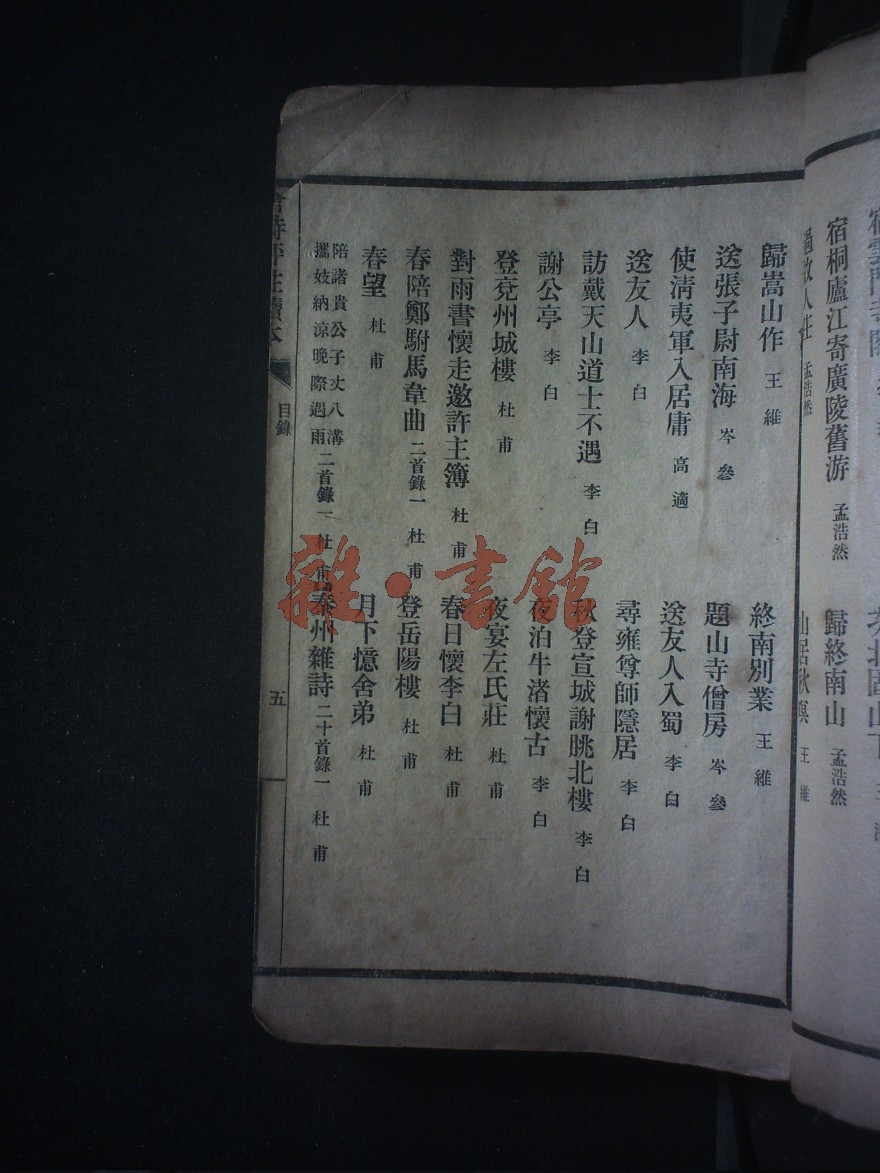 宿桐廬江寄廣陵舊游 孟浩然
歸終南山 孟浩然
過故人莊 孟浩然
山居秋暝 王維
歸嵩山作 王維
終南別業 王維
送張子尉南海 岑參
題山寺僧房 岑參
使淸夷軍入居庸 高適
送友人入蜀 李白
送友人 李白
尋雍尊師隱居 李白
訪戴天山道士不遇 李白
秋登宣城謝脁北樓 李白
謝公亭 李白
夜泊牛渚懷古 李白
登兗州城樓 杜甫
夜宴左氏莊 杜甫
對雨書懷走邀許主簿 杜甫
春日懷李白 杜甫
春陪鄭駙馬韋曲 二首錄一 杜甫
登岳陽樓 杜甫
春望 杜甫
月下憶舍弟 杜甫
陪諸貴公子丈八溝
攜妓納涼晚際遇雨 二首錄一 杜甫
秦州雜詩 二十首錄一 杜甫
目錄
五
雜·書館